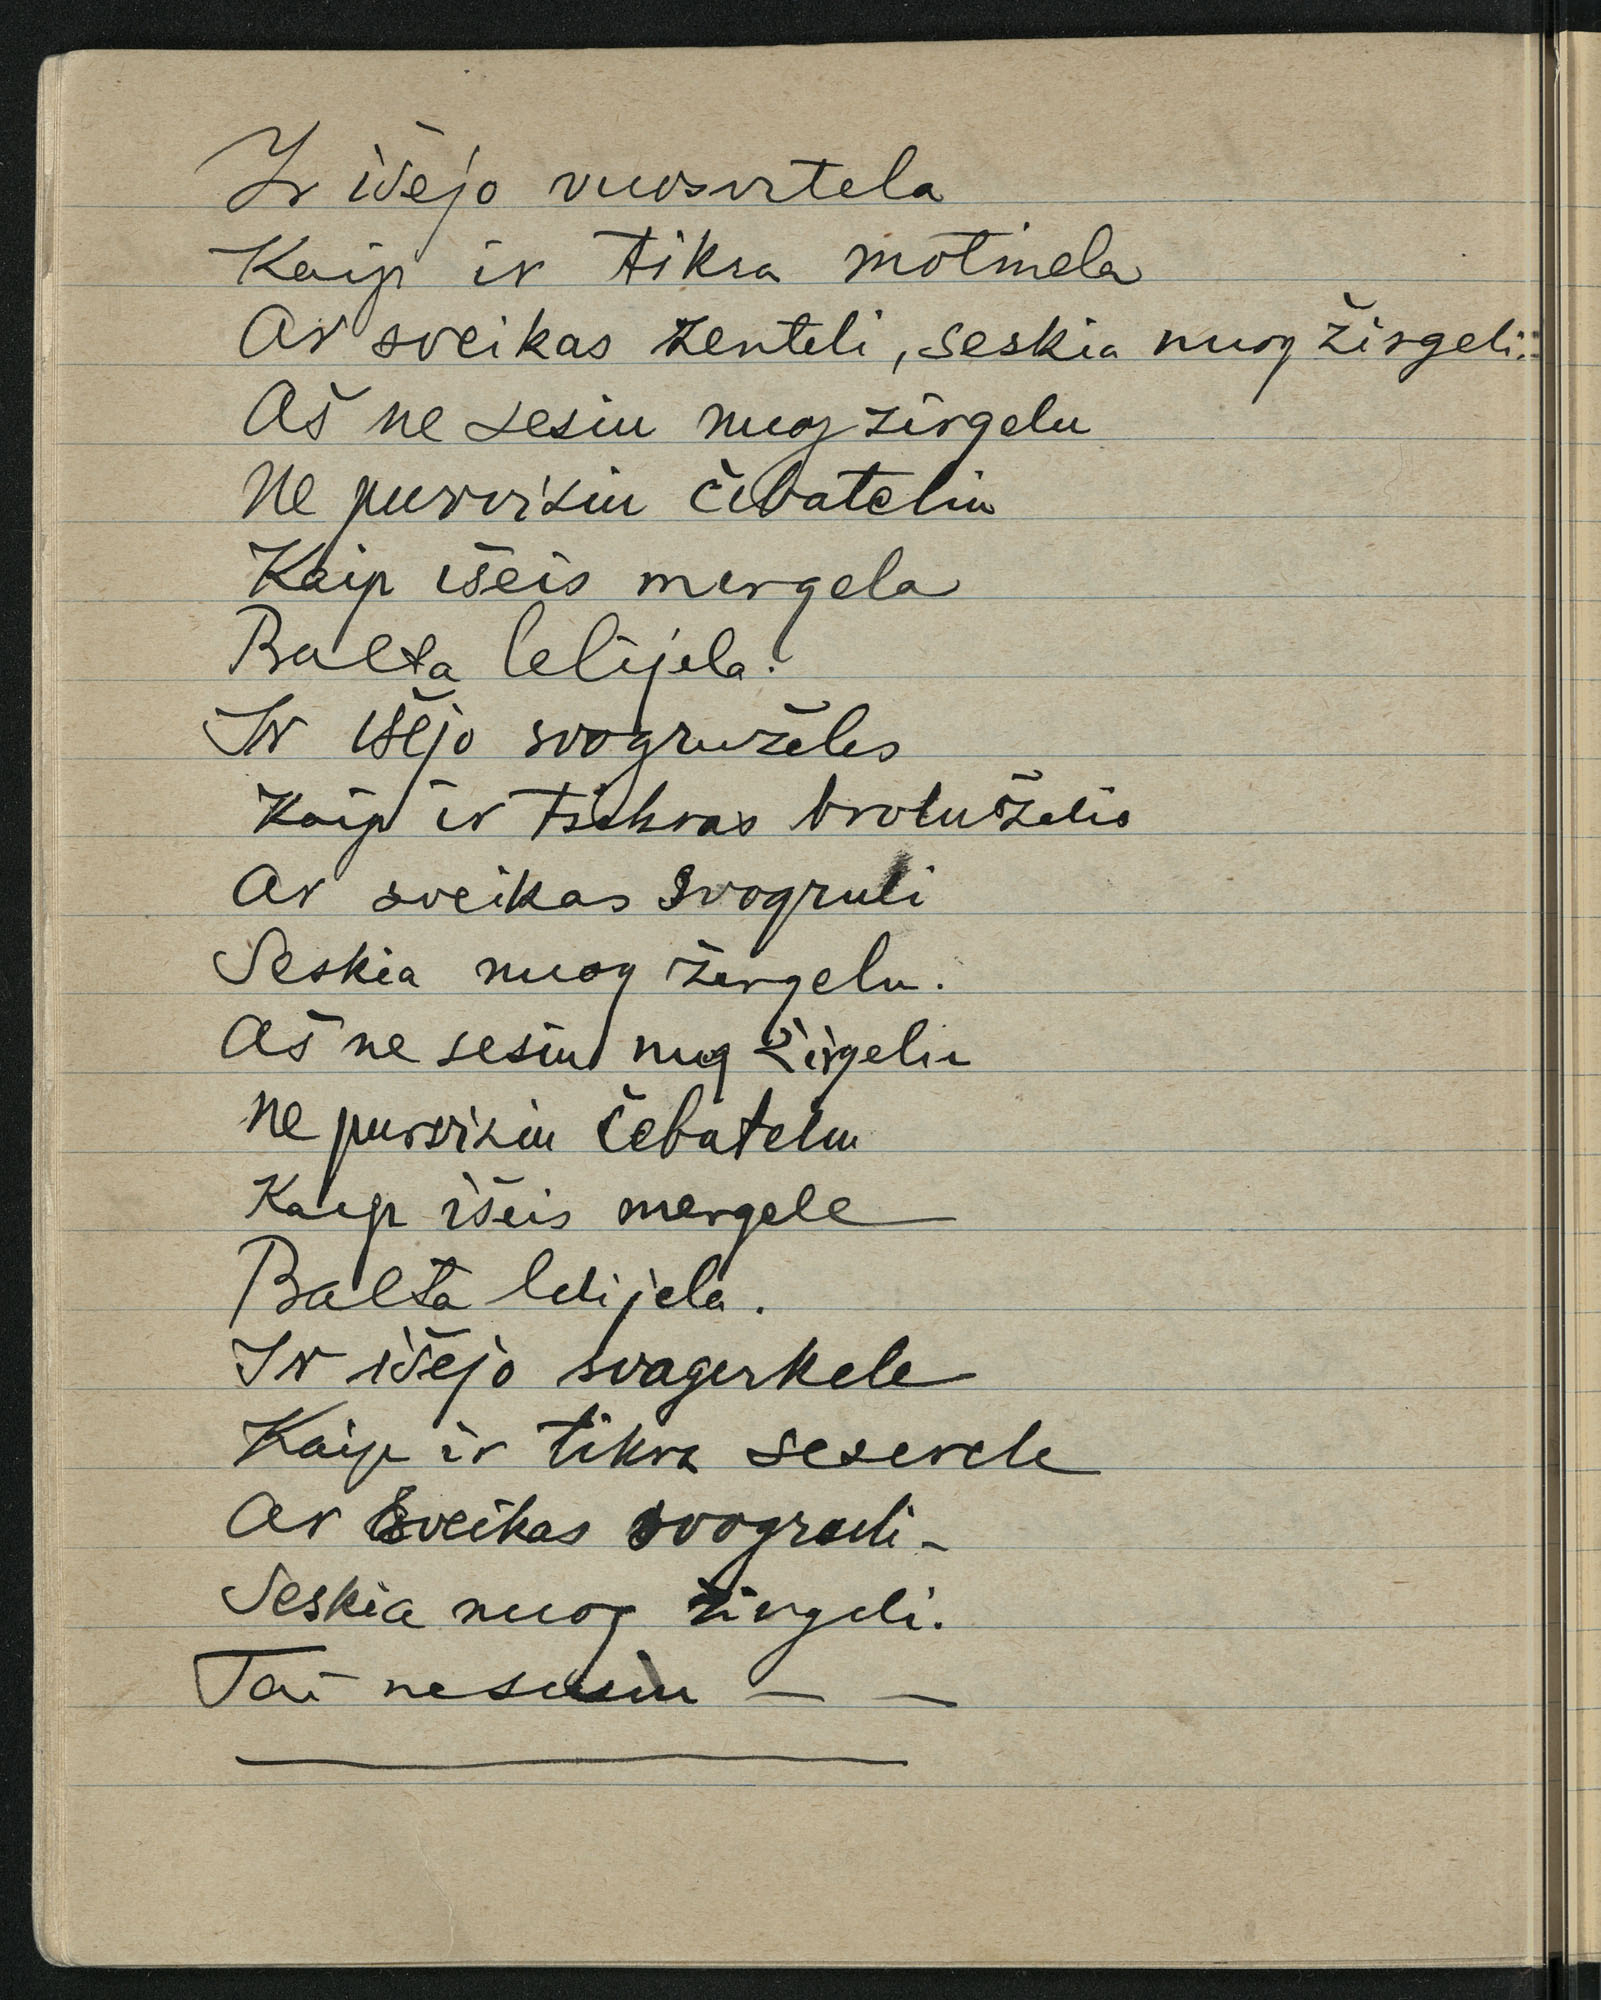 Ir išejo vuosvtela
Kaip ir tikra motinela
Ar sveikas zenteli, seskia nuog žirgeli.
Aš ne sesiu nuog zirgelu
Ne purvisiu čebateliu
Kaip išeis mergela
Balta lelijela.
Ir išejo svogruželes
Kaip ir tikras broluželis
Ar sveikas svogruli
Seskia nuog žirgelu.
Aš ne sesiu nug žirgeliu
Ne purvisiu čebateliu
Kaip išeis mergele
Balta lelijela.
Ir išejo svagerkele
Kaip ir tikra seserele
Ar sveikas svogruli -
Seskia nuog žirgeli.
Tai nesesiu — —